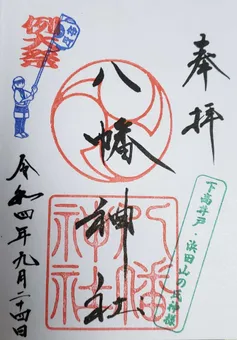 奉拝
下高井戸・浜田山の氏神様
八幡神社
八幡神社
例大祭
令和四年九月二十四日